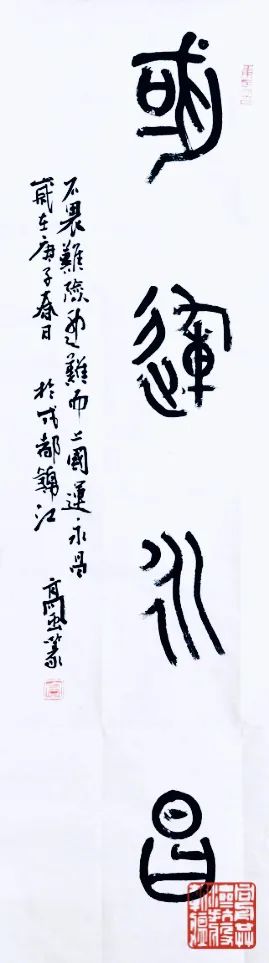 國運永昌
不畏難險迎難而上國運永昌
歲在庚子春日 於成都錦江 高篆